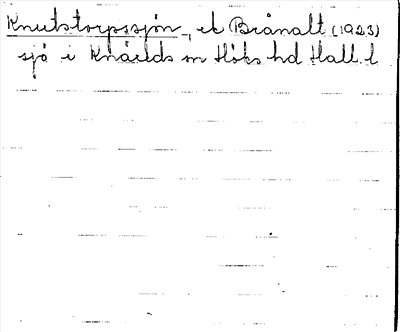 Knutstorpssjön, ek Brånalt (1923)
sjö i Knäreds sn Höks hd Hall. l